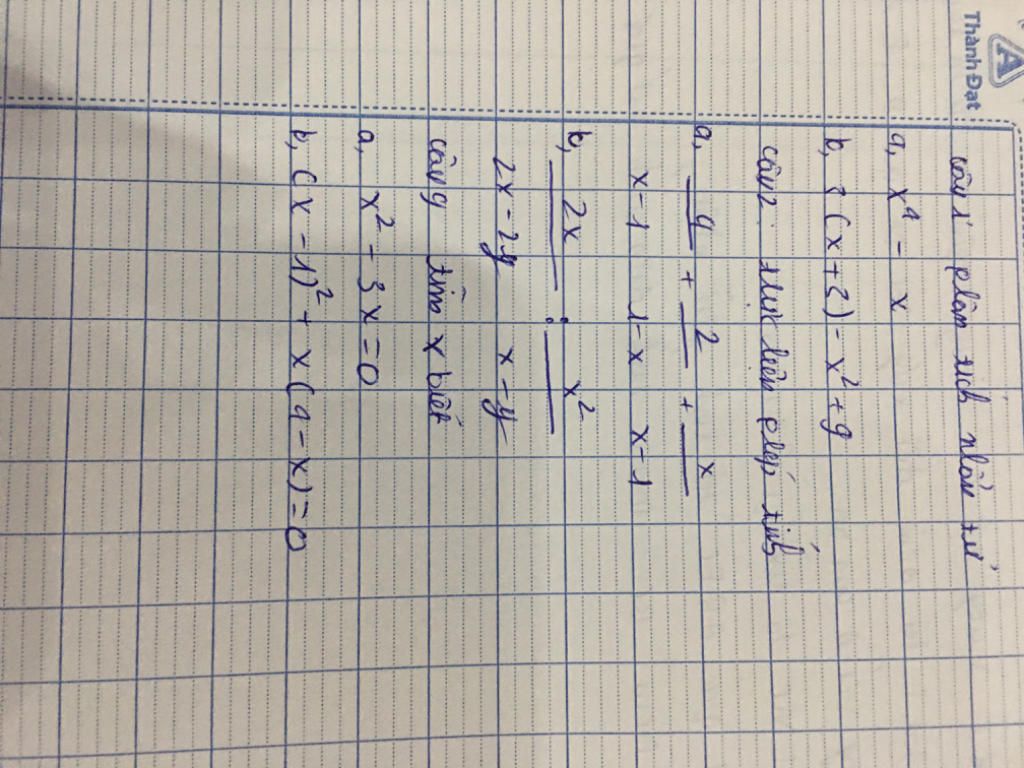 A
Thành Đạt
câu 1 phân tích nhân tử
a, x⁴ - x
b, 3(x+2) - x² + 9
câu 2: thực hiện phép tính
a, 4/(x-1) + 2/(1-x) + x/(x-1)
b, 2x/(2x-2y) : x²/(x-y)
câu 9 tìm x biết
a, x² - 3x = 0
b, (x - 1)² + x(4 - x) = 0